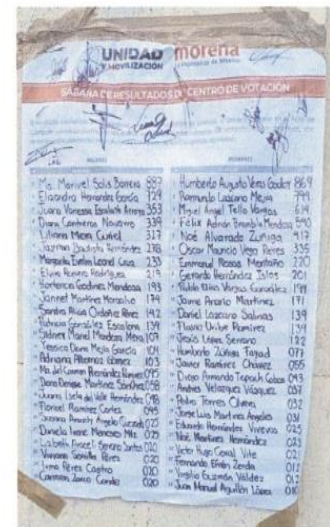 UNIDAD
Y MOVILIZACIÓN
morena
La esperanza de México
SÁBANA DE RESULTADOS DE CENTRO DE VOTACIÓN
MUJERES
HOMBRES
Ma. Marivel Solis Barrera 887
Elizandra Hernández García 729
Juana Vanessa Escalante Arroyo 353
Diana Contreras Navarro 339
Liliana Mejia Curiel 317
Yazmin Bautista Hernández 278
Margarita Evelin Leonel Cruz 233
Elvia Romero Rodríguez 213
Hortencia Godines Mendoza 193
Jannet Martinez Monzalvo 174
Sandra Alicia Ordoñez Pérez 142
Patricia González Escalona 134
Sidney Marel Mendoza Mera 107
Jessica Dani Mejia García 104
Adriana Albornoz Gómez 103
Ma. del Carmen Hernández 095
Dana Denque Martinez Sánchez 058
Juana Isela del Valle Hernández 048
Floricel Ramirez Cortes 045
Susana Araceli Angeles Quezada 025
Daniela Irene Meneses Mtz 025
Lizbeth Araceli Serano Santos 020
Viviana Santillan Pérez 020
Irma Pérez Castro 020
Carmen Zarco Conde 020
Humberto Augusto Veras Godoy 869
Raymundo Lazcano Mejia 799
Miguel Angel Tello Vargas 614
Félix Adrian Brambila Mendoza 540
Noé Alvarado Zuñiga 417
Oscar Mauricio Vega Reyes 335
Emmanuel Rosas Montaño 220
Gerardo Hernández Islas 201
Pablo Elías Vargas González 199
Jaime Ararlo Martinez 171
Daniel Lazcano Salinas 139
Flavio Uribe Ramirez 134
Jesús López Serrano 122
Humberto Zuñiga Fayad 077
Javier Ramirez Chávez 055
Diego Armando Tepach Gabas 043
Andres Velazquez Vazquez 037
Pedro Torres Olvera 032
Jorge Luis Martinez Angeles 031
Eduardo Hernández Viveros 025
Noé Martinez Hernández 023
Victor Hugo Coral Vite 021
Fernando Efrén Zerda 012
Virgilio Guzmán Valdez 012
Juan Manuel Aguillón López 010